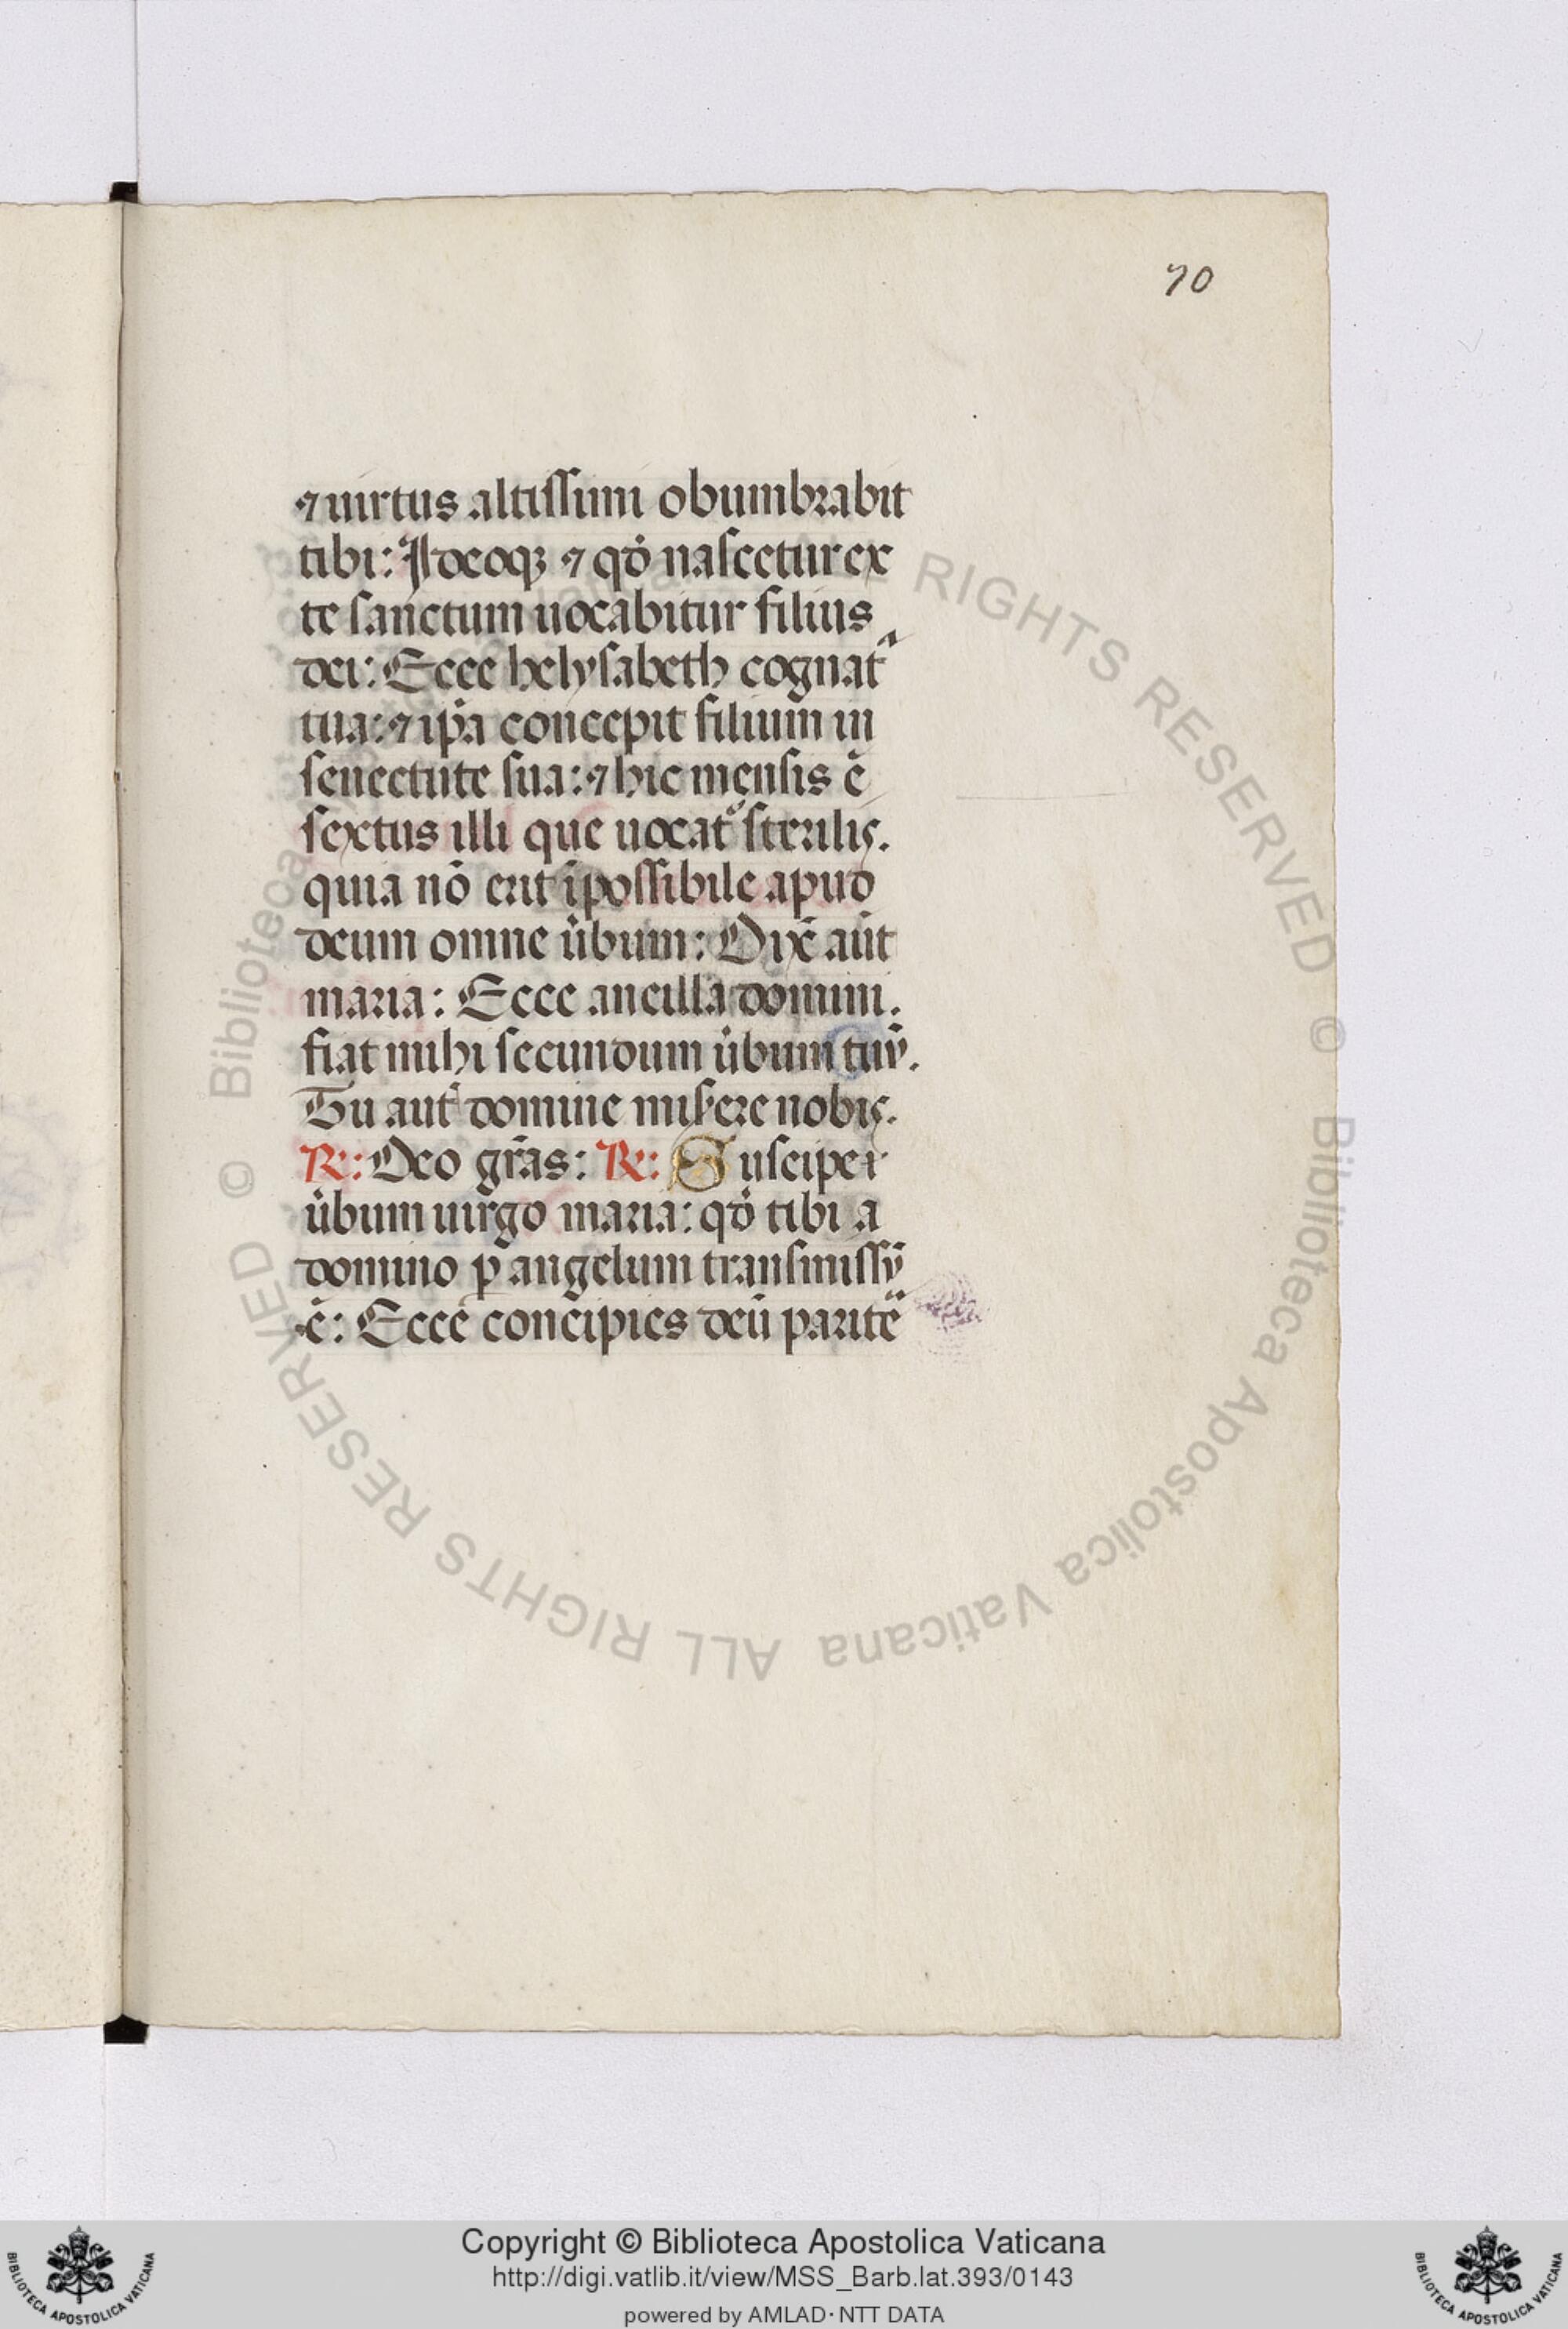 70
⁊ uirtus altissimi obumbrabit
tibi: Ideoqꝫ ⁊ qđ nascetur ex
te sanctum uocabitur filius
dei: Ecce helysabeth cognatᵃ
tua: ⁊ ip̄a concepit filium in
senectute sua: ⁊ hic mensis ē
sextus illi que uocatᷣ sterilis.
quia nō erit īpossibile apud
deum omne u̾bum: Dix̄ aūt
maria: Ecce ancilla domini.
fiat mihi secundum u̾bum tuū.
Tu aut̄ domine misere nobis.
R: Deo gr̄as: R: Suscipe
u̾bum uirgo maria: qđ tibi a
domino ꝑ angelum transmissū
ē: Ecce concipies deū paritē
© Biblioteca Apostolica Vaticana ALL RIGHTS RESERVED © Biblioteca
RIGHTS RESERVED
Copyright © Biblioteca Apostolica Vaticana
http://digi.vatlib.it/view/MSS_Barb.lat.393/0143
powered by AMLAD·NTT DATA
BIBLIOTECA APOSTOLICA VATICANA
BIBLIOTECA APOSTOLICA VATICANA